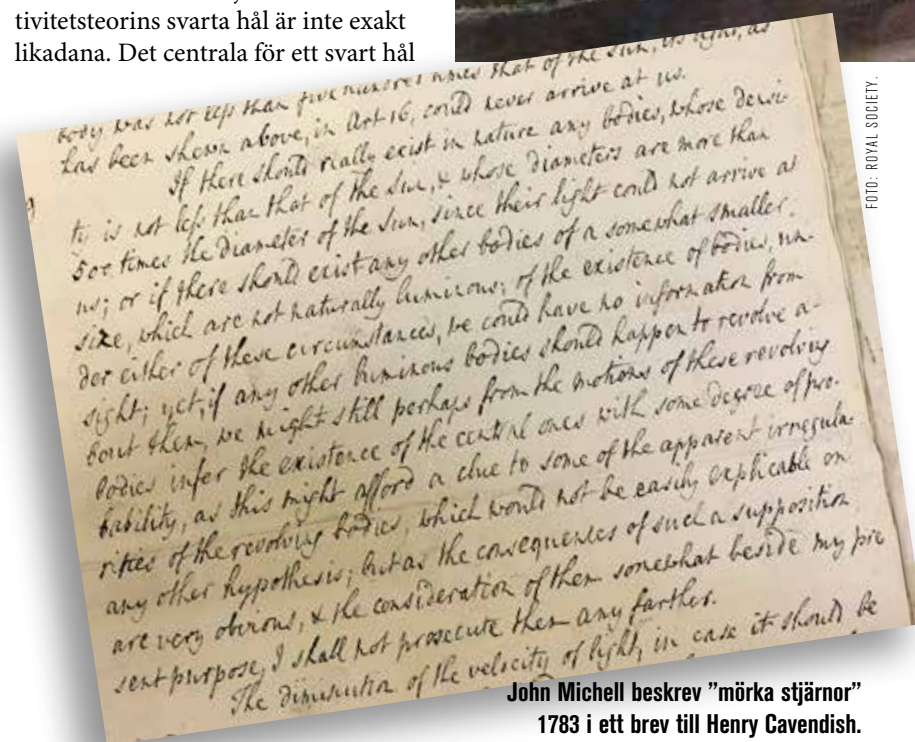 tivitetsteorins svarta hål är inte exakt
likadana. Det centrala för ett svart hål
body was not less than five hundred times that of the Sun, its light, as
has been shewn above, in Art. 16, could never arrive at us.
If there should really exist in nature any bodies, whose densi-
ty is not less than that of the Sun, & whose diameters are more than
500 times the diameter of the Sun, since their light could not arrive at
us; or if there should exist any other bodies of a somewhat smaller
size, which are not naturally luminous; of the existence of bodies, un-
der either of these circumstances, we could have no information from
sight; yet, if any other luminous bodies should happen to revolve a-
bout them, we might still perhaps from the motions of these revolving
bodies infer the existence of the central ones with some degree of pro-
bability, as this might afford a clue to some of the apparent irregula-
rities of the revolving bodies, which would not be easily explicable on
any other hypothesis; but as the consequences of such a supposition
are very obvious, & the consideration of them somewhat beside my pre
sent purpose, I shall not prosecute them any farther.
The diminution of the velocity of light, in case it should be
FOTO: ROYAL SOCIETY.
John Michell beskrev ”mörka stjärnor”
1783 i ett brev till Henry Cavendish.